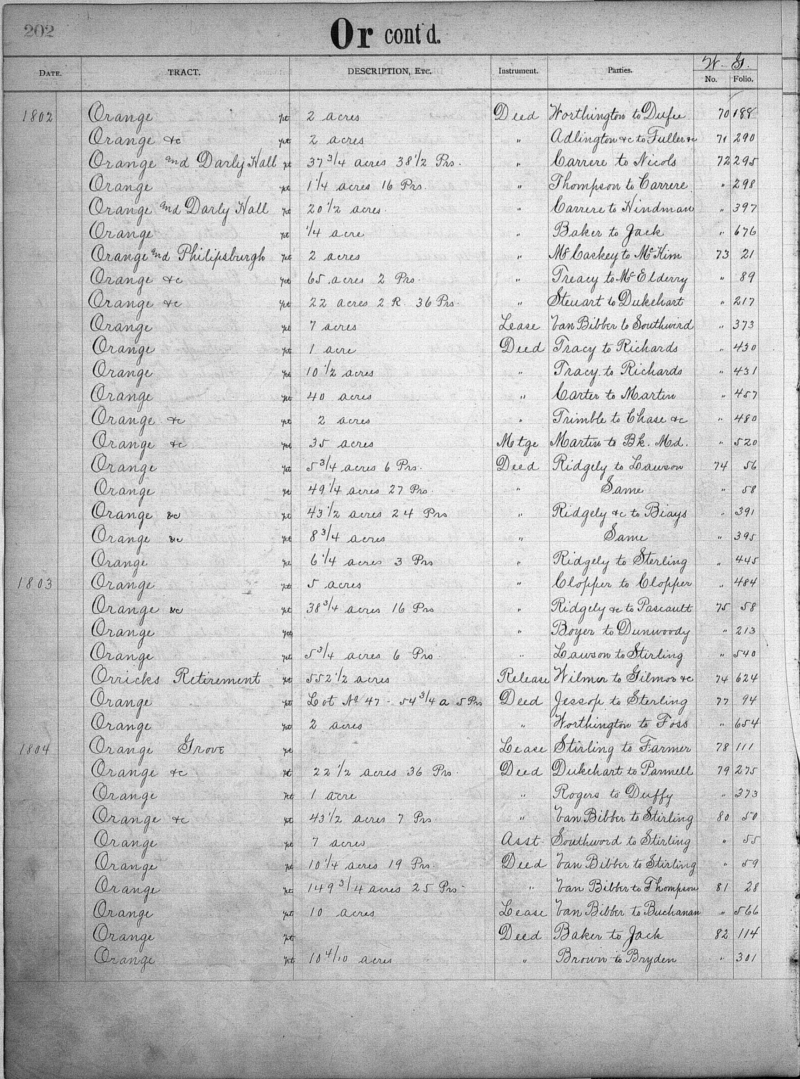 202
Or cont'd.
W. G.
Date. TRACT. DESCRIPTION, Etc. Instrument. Parties. No. Folio.
1802 Orange pt 2 acres Deed Worthington to Dufee 70 188
Orange &c pt 2 acres " Adlington &c to Fuller &c 71 290
Orange and Darly Hall pt 37 3/4 acres 38 1/2 Prs. " Carrere to Nicols 72 295
Orange pt 1 1/4 acres 16 Prs " Thompson to Carrere " 298
Orange and Darly Hall pt 20 1/2 acres " Carrere to Hindman " 397
Orange pt 1/4 acre " Baker to Jack " 676
Orange and Philipsburgh pt 2 acres " McCaskey to McKim 73 21
Orange &c pt 65 acres 2 Prs. " Treacy to McElderry " 89
Orange &c pt 22 acres 2 R 36 Prs. " Steuart to Dukehart " 217
Orange pt 7 acres Lease Van Bibber to Southword " 373
Orange pt 1 acre Deed Tracy to Richards " 430
Orange pt 10 1/2 acres " Tracy to Richards " 431
Orange pt 40 acres " Carter to Martin " 457
Orange &c pt 2 acres " Trimble to Chase &c " 480
Orange &c pt 35 acres Mtge Martin to Bk. Md. " 520
Orange pt 5 3/4 acres 6 Prs. Deed Ridgely to Lawson 74 56
Orange pt 49 1/4 acres 27 Prs. " Same " 58
Orange &c pt 43 1/2 acres 24 Prs " Ridgely &c to Biays " 391
Orange &c pt 8 3/4 acres " Same " 395
Orange pt 6 1/4 acres 3 Prs " Ridgely to Sterling " 445
1803 Orange pt 5 acres " Clopper to Clopper " 484
Orange &c pt 38 3/4 acres 16 Prs " Ridgely &c to Pascault 75 58
Orange pt " Boyer to Dunwoody " 213
Orange pt 5 3/4 acres 6 Prs. " Lawson to Stirling " 540
Orricks Retirement pt 552 1/2 acres Release Wilmer to Gilmor &c 74 624
Orange pt Lot No 47 - 54 3/4 a 5 Prs Deed Jessop to Sterling 77 94
Orange pt 2 acres " Worthington to Foss " 654
1804 Orange Grove pt Lease Stirling to Farmer 78 111
Orange &c pt 22 1/2 acres 36 Prs. Deed Dukehart to Pannell 79 275
Orange pt 1 acre " Rogers to Duffy " 373
Orange &c pt 43 1/2 acres 7 Prs " Van Bibber to Stirling 80 50
Orange pt 7 acres Asst Southword to Stirling " 55
Orange pt 10 1/4 acres 19 Prs. Deed Van Bibber to Stirling " 59
Orange pt 149 3/4 acres 25 Prs. " Van Bibber to Thompson 81 28
Orange pt 10 acres Lease Van Bibber to Buchanan " 566
Orange pt Deed Baker to Jack 82 114
Orange pt 10 4/10 acres " Brown to Bryden " 301